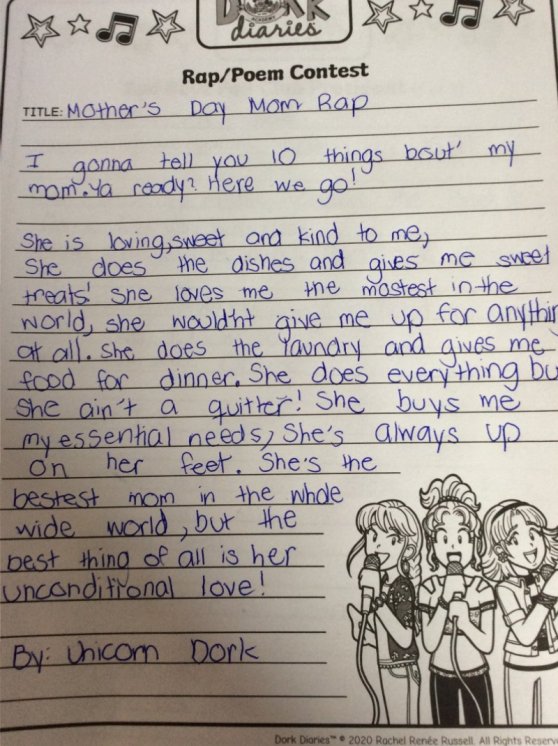 DORK
diaries
Rap/Poem Contest
TITLE: Mother's Day Mom Rap
I gonna tell you 10 things bout' my
mom. Ya ready? Here we go!
She is loving, sweet and kind to me,
She does the dishes and gives me sweet
treats! She loves me the mostest in the
world, she would'nt give me up for anythin
at all. She does the laundry and gives me
food for dinner. She does everything bu
She ain't a quitter! She buys me
my essential needs, She's always up
on her feet. She's the
bestest mom in the whole
wide world, but the
best thing of all is her
unconditional love!
By: Unicorn Dork
Dork Diaries™ © 2020 Rachel Renée Russell. All Rights Reserv